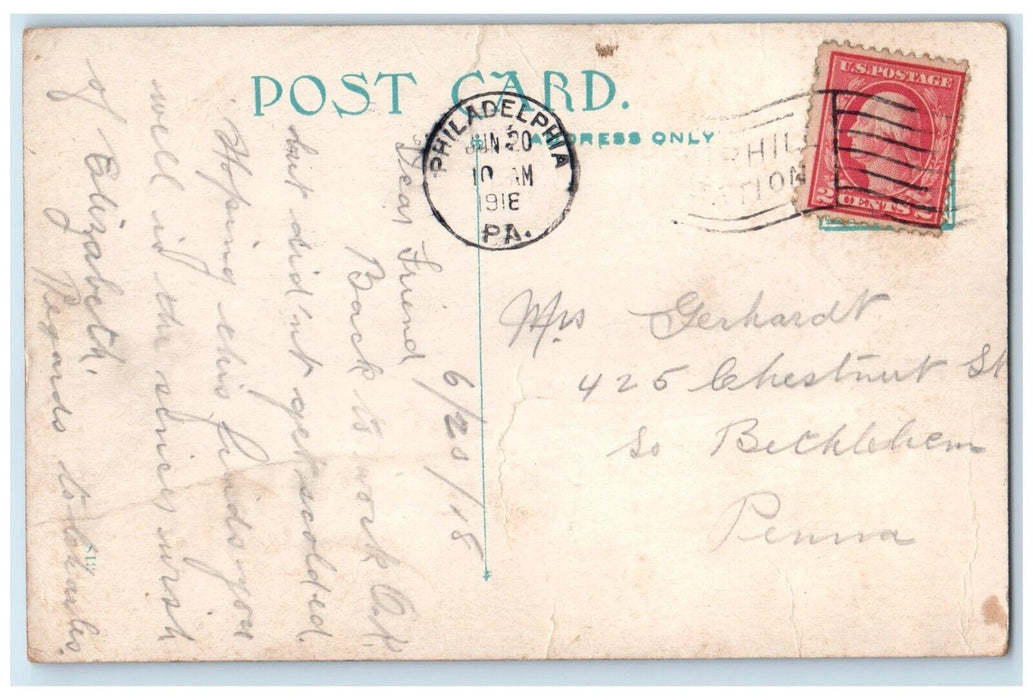 POST CARD.
ADDRESS ONLY
PHILADELPHIA
JUN 20
10 AM
1918
PA.
PHIL
STATION
U.S. POSTAGE
2 CENTS 2
6/20/18
Dear Friend
Back to work O.K.
but did'nt get scolded.
Hoping this finds you
well is the sincer wish
of Elizabeth.
Regards to Charles.
Mrs Gerhardt
425 Chestnut St
So Bethlehem
Penna